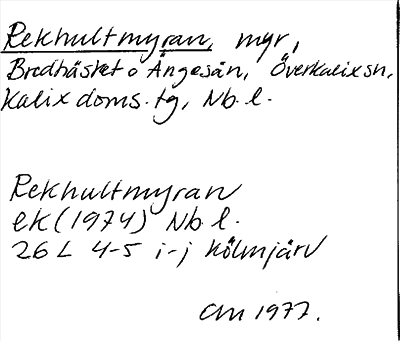 Rekhultmyran, myr,
Bredhäsket o Ängesån, Överkalix sn,
Kalix doms. tg, Nb. l.
Rekhultmyran
ek (1974) Nb l.
26 L 4-5 i-j Kölmjärv
1977.